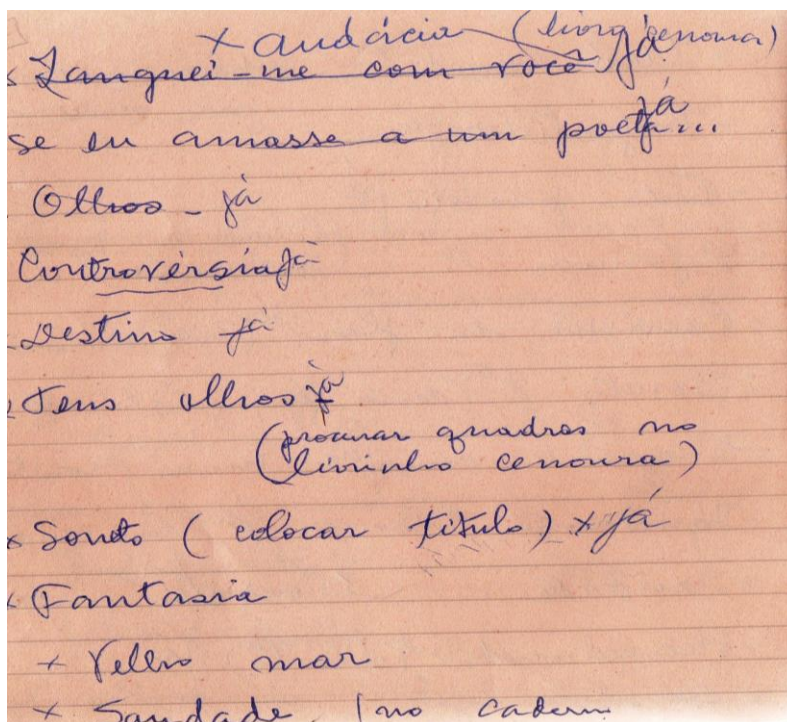 x audácia (livro cenoura)
x Zanguei-me com você já
se eu amasse a um poeta... já
Olhos - já
Controvérsia já
Destino já
Teus olhos já
(procurar quadras no
livrinho cenoura)
x Soneto (colocar título) x já
x Fantasia
x Velho mar
x Saudade (no caderno